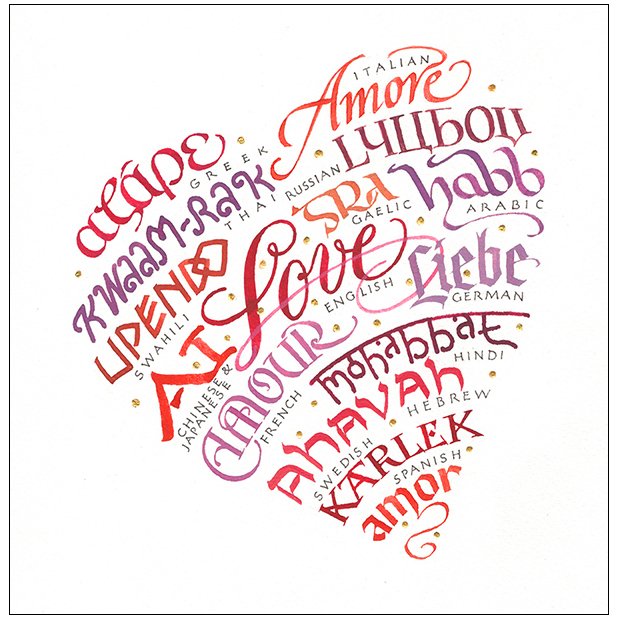 ITALIAN
Amore
agápe
GREEK
LYUBOV
RUSSIAN
KWAAM-RAK
THAI
GRA
GAELIC
habb
ARABIC
UPENDO
SWAHILI
Love
ENGLISH
Liebe
GERMAN
AI
CHINESE &
JAPANESE
AMOUR
FRENCH
mohabbat
HINDI
AHAVAH
HEBREW
SWEDISH
KARLEK
SPANISH
amor